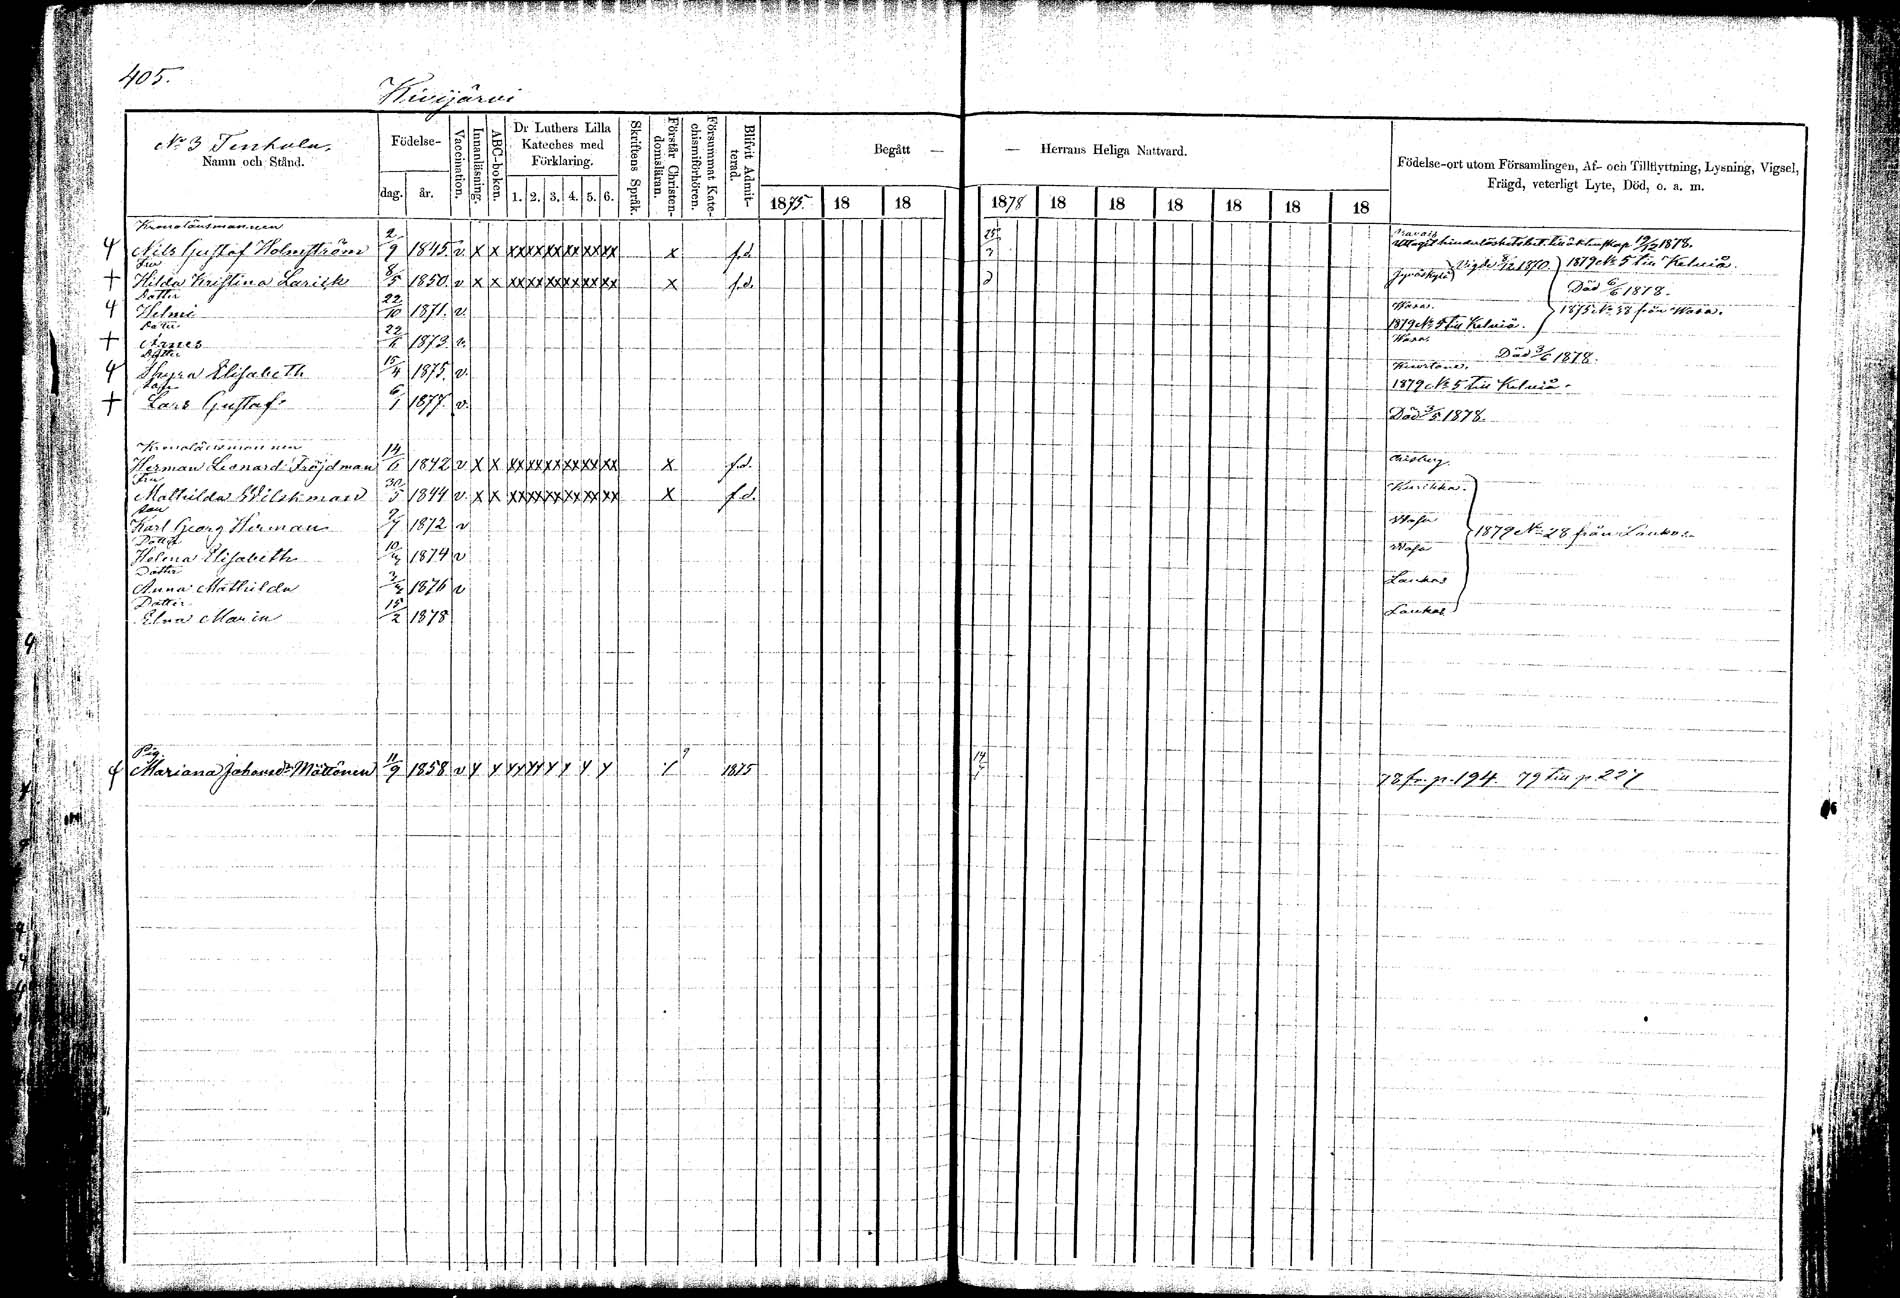 405.
Kivijärvi
No 3 Tenhola.
Namn och Stånd.
Födelse-
dag. år.
Vaccination.
Innanläsning.
ABC-boken.
Dr Luthers Lilla
Kateches med
Förklaring.
1. 2. 3. 4. 5. 6.
Skriftens Språk.
Förstår Christendomsläran.
Försummat Katechismiförhören.
Blifvit Admitterad.
Begått —
— Herrans Heliga Nattvard.
1875. 18 18 1878 18 18 18 18 18 18
Födelse-ort utom Församlingen, Af- och Tillflyttning, Lysning, Vigsel,
Frägd, veterligt Lyte, Död, o. a. m.
Kronolänsmannen
Nils Gustaf Holmström 2/9 1845. v. x x xx xx xx xx xx xx x f.d. 25/3 Uttagit hinderlöshetsbet. till äktenskap 19/12 1878.
1879 No 5 till Kelviå.
Fru
Hilda Kristina Larick 8/5 1850. v x x xx xx xx xx xx xx x f.d. Jyväskylä Vigde 8/12 1870.
Död 6/6 1878.
Dotter
Helmi 22/10 1871. v. Wasa. 1875 No 38 från Wasa.
1879 No 5 till Kelviå.
Dotter
Agnes 22/11 1873 v. Wasa.
Död 3/6 1878.
Dotter
Thyra Elisabeth 15/4 1875. v.
1879 No 5 till Kelviå.
Lars Gustaf 6/1 1877. v. Död 3/5 1878.
Kronolänsmannen
Herman Leonard Fröjdman 14/6 1842 v x x xx xx xx xx xx xx x f.d.
Fru
Mathilda Wilskman 30/5 1844 v. x x xx xx xx xx xx xx x f.d. Kurikka.
Son
Karl Georg Herman 7/7 1872 v Wasa
1879 No 28 från Laukas
Dotter
Helena Elisabeth 1874 v Wasa
Dotter
Anna Mathilda 1876 v Laukas
Dotter
Elna Maria 15/2 1878 Laukas
Pig.
Mariana Johansdr Möttönen 11/9 1858 v 1875 14/7 78 fr. p. 194. 79 till p. 227